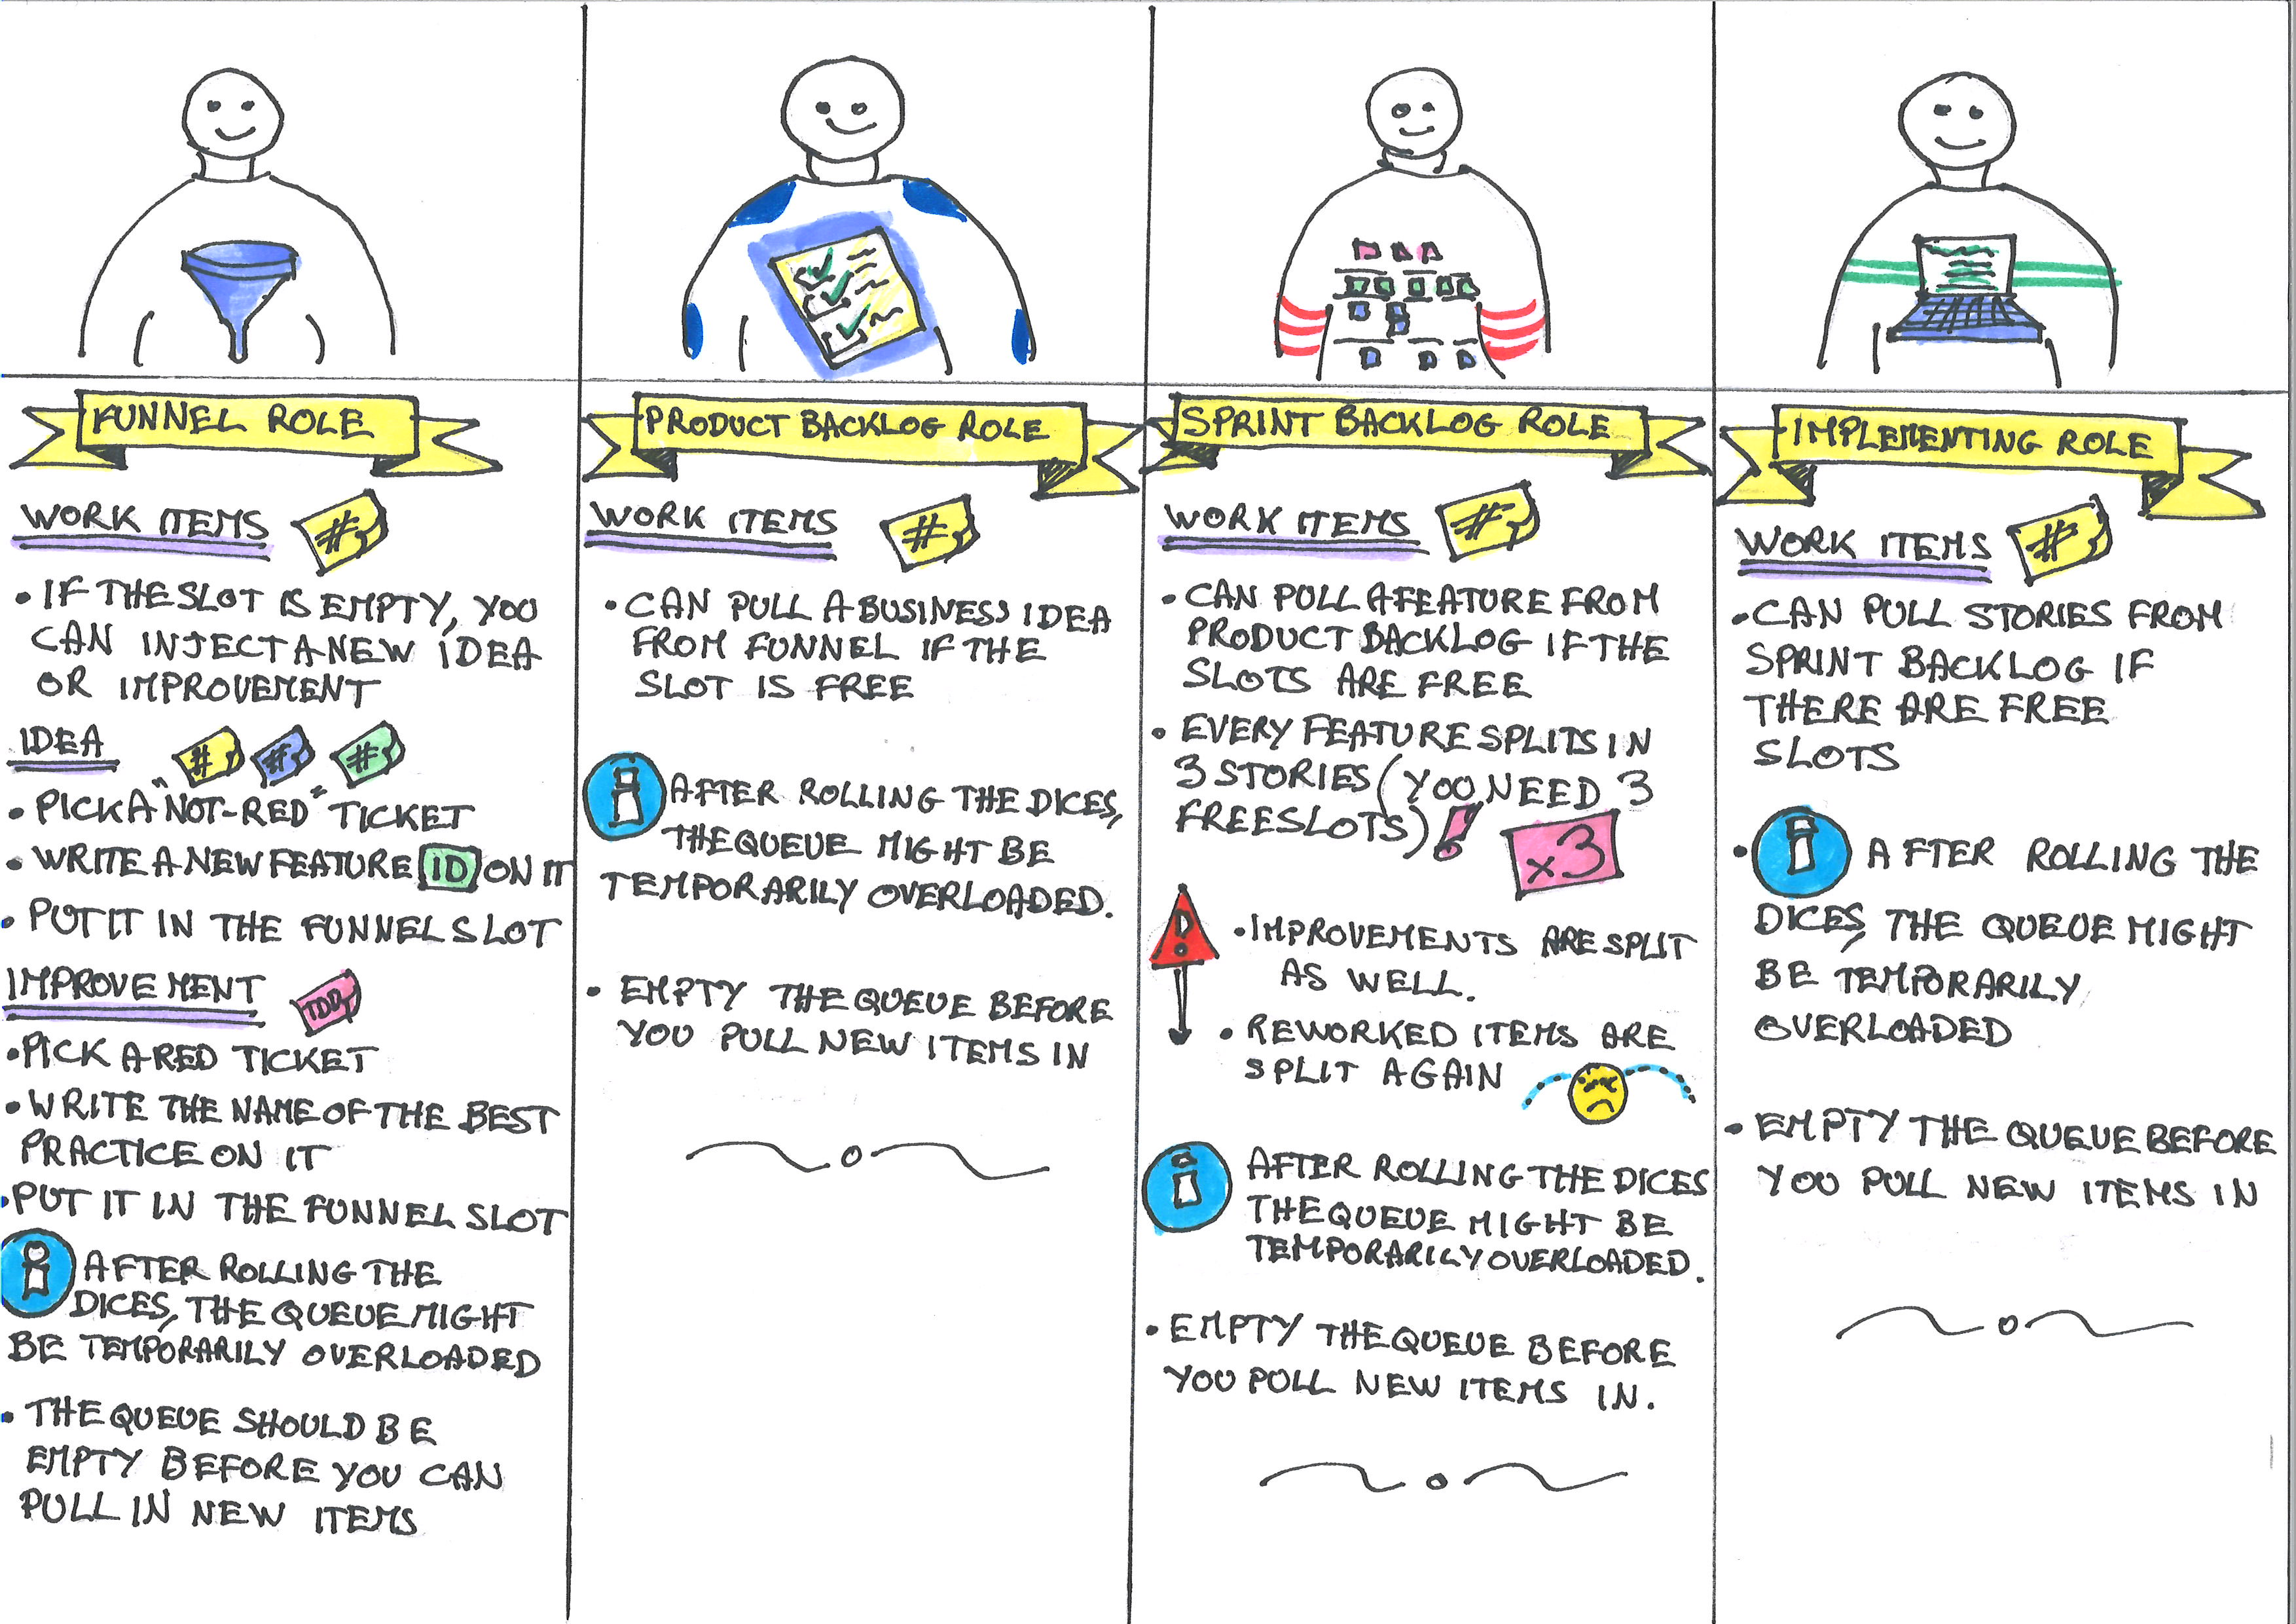 FUNNEL ROLE
WORK ITEMS #
• IF THE SLOT IS EMPTY, YOU
CAN INJECT A NEW IDEA
OR IMPROVEMENT
IDEA # # #
• PICK A "NOT-RED" TICKET
• WRITE A NEW FEATURE ID ON IT
• PUT IT IN THE FUNNEL SLOT
IMPROVEMENT TDD
• PICK A RED TICKET
• WRITE THE NAME OF THE BEST
PRACTICE ON IT
• PUT IT IN THE FUNNEL SLOT
i AFTER ROLLING THE
DICES, THE QUEUE MIGHT
BE TEMPORARILY OVERLOADED
• THE QUEUE SHOULD BE
EMPTY BEFORE YOU CAN
PULL IN NEW ITEMS
PRODUCT BACKLOG ROLE
WORK ITEMS #
• CAN PULL A BUSINESS IDEA
FROM FUNNEL IF THE
SLOT IS FREE
i AFTER ROLLING THE DICES,
THE QUEUE MIGHT BE
TEMPORARILY OVERLOADED.
• EMPTY THE QUEUE BEFORE
YOU PULL NEW ITEMS IN
SPRINT BACKLOG ROLE
WORK ITEMS #
• CAN PULL A FEATURE FROM
PRODUCT BACKLOG IF THE
SLOTS ARE FREE
• EVERY FEATURE SPLITS IN
3 STORIES (YOU NEED 3
FREE SLOTS)! x3
! • IMPROVEMENTS ARE SPLIT
AS WELL.
• REWORKED ITEMS ARE
SPLIT AGAIN
i AFTER ROLLING THE DICES
THE QUEUE MIGHT BE
TEMPORARILY OVERLOADED.
• EMPTY THE QUEUE BEFORE
YOU PULL NEW ITEMS IN.
IMPLEMENTING ROLE
WORK ITEMS #
• CAN PULL STORIES FROM
SPRINT BACKLOG IF
THERE ARE FREE
SLOTS
• i AFTER ROLLING THE
DICES, THE QUEUE MIGHT
BE TEMPORARILY
OVERLOADED
• EMPTY THE QUEUE BEFORE
YOU PULL NEW ITEMS IN